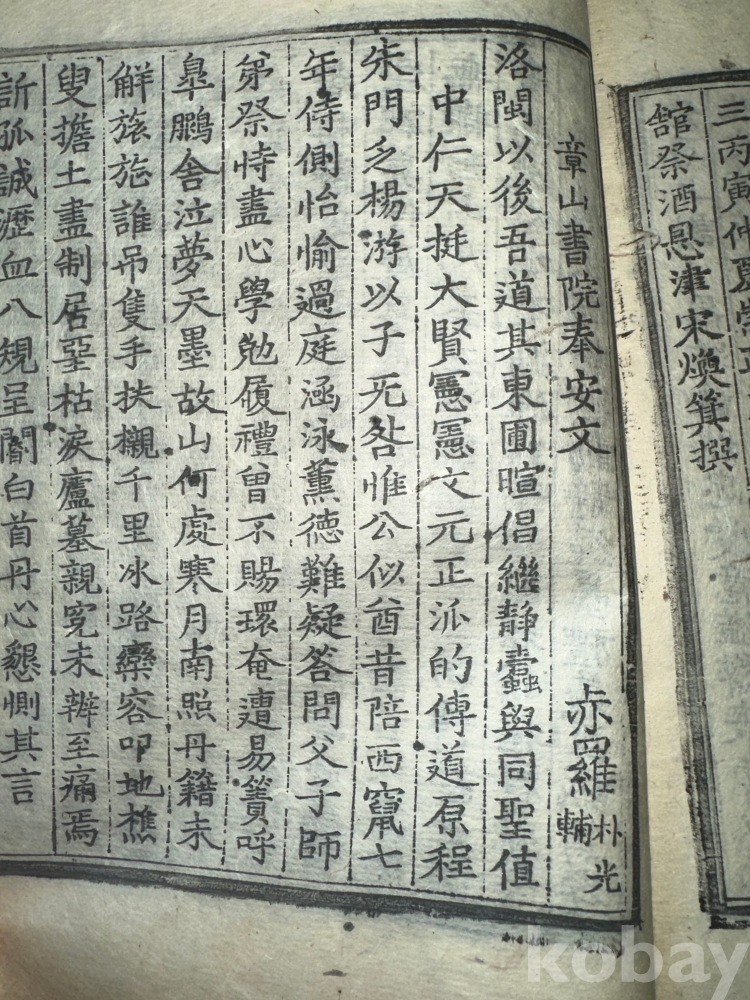 三丙寅仲夏
舘祭酒恩津宋煥箕撰
章山書院奉安文
赤羅朴光輔
洛閩以後吾道其東圃暄倡繼静蠹與同聖值
中仁天挺大賢憲憲文元正派的傳道原程
朱門之楊游以子旡咎惟公似酋昔陪西竄七
年侍側怡愉過庭涵泳薰德難疑答問父子師
第祭恃盡心學勉履禮曾不賜環奄遭易簀呼
皐鵬舍泣夢天墨故山何處寒月南照丹籍未
觧旅旐誰吊隻手扶櫬千里冰路欒容叩地樵
叟擔土盡制居堊枯淚廬墓親寃未辦至痛焉
訢孤誠瀝血八規呈闇白首丹心懇惻其言
kobay